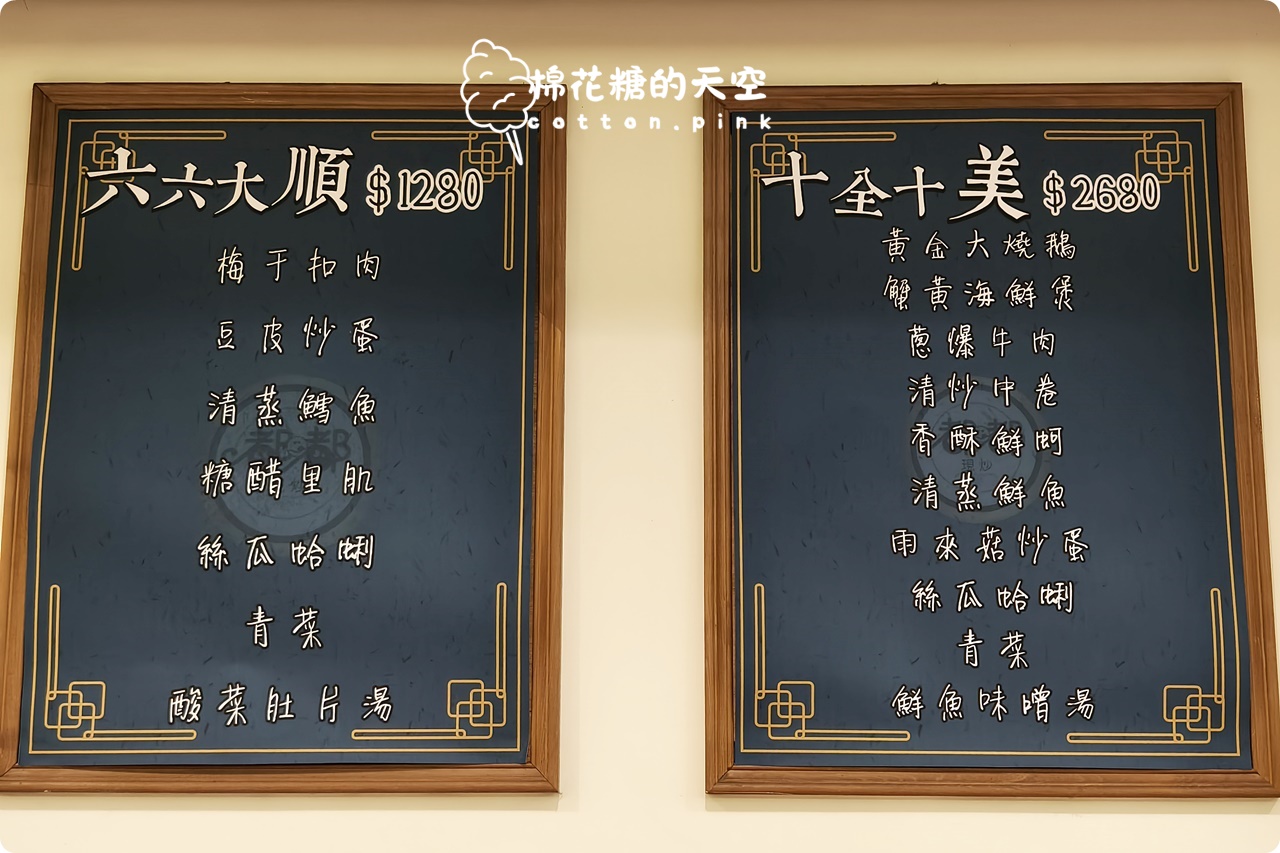 棉花糖的天空
cotton.pink
六六大順 $1280
梅干扣肉
豆皮炒蛋
清蒸鱈魚
糖醋里肌
絲瓜蛤蜊
青菜
酸菜肚片湯
都都
十全十美 $2680
黃金大燒鵝
蟹黃海鮮煲
蔥爆牛肉
清炒中卷
香酥鮮蚵
清蒸鮮魚
雨來菇炒蛋
絲瓜蛤蜊
青菜
鮮魚味噌湯
現炒